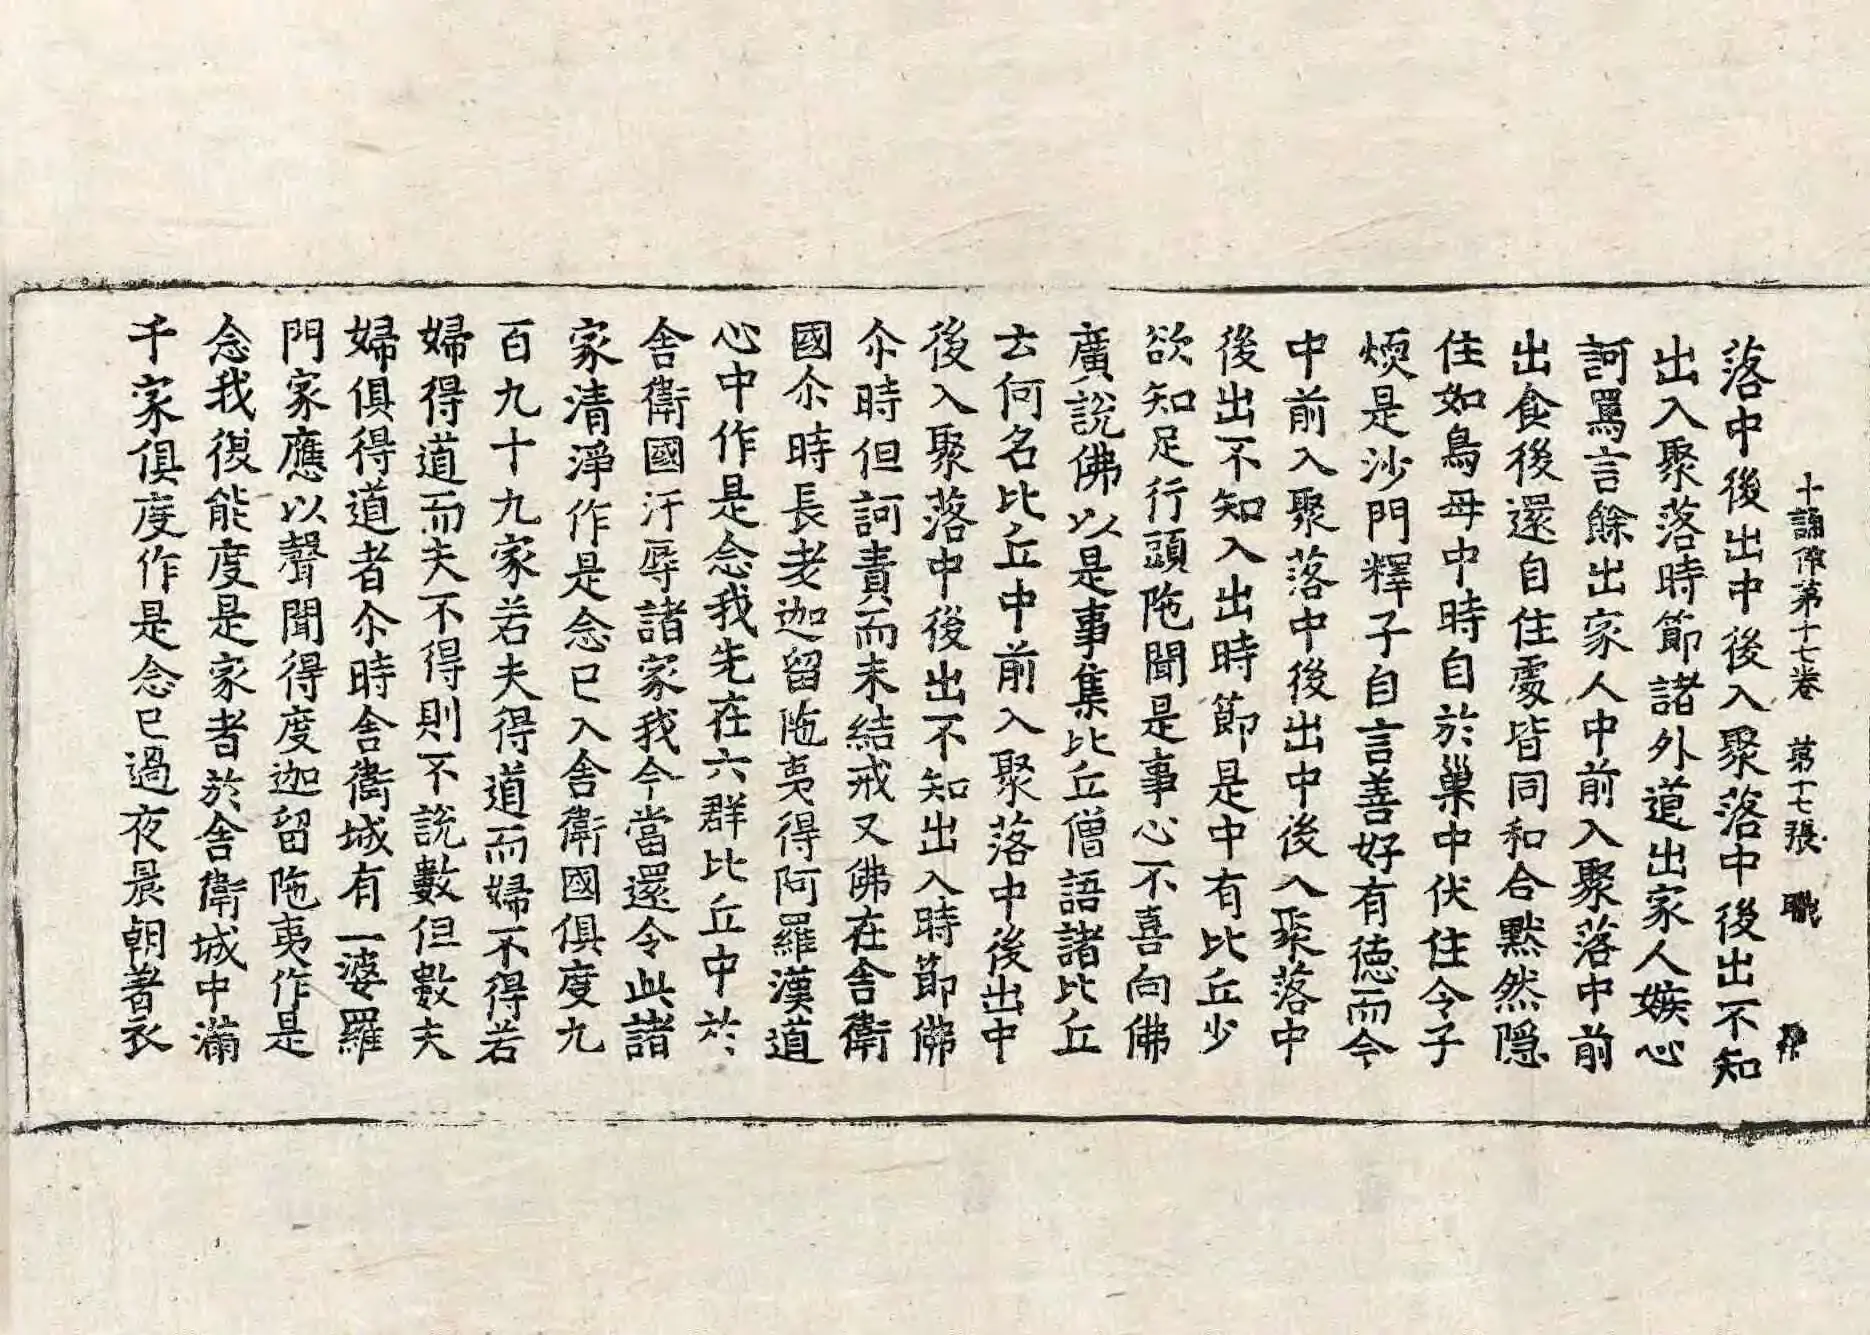 十誦律第十七卷 第十七張 職
落中後出中後入聚落中後出不知
出入聚落時節諸外道出家人嫉心
訶罵言餘出家人中前入聚落中前
出食後還自住處皆同和合默然隱
住如鳥母中時自於巢中伏住令子
煗是沙門釋子自言善好有德而今
中前入聚落中後出中後入聚落中
後出不知入出時節是中有比丘少
欲知足行頭陁聞是事心不喜向佛
廣說佛以是事集比丘僧語諸比丘
去何名比丘中前入聚落中後出中
後入聚落中後出不知出入時節佛
尒時但訶責而未結戒又佛在舍衛
國尒時長老迦留陁夷得阿羅漢道
心中作是念我先在六群比丘中於
舍衛國汙辱諸家我今當還令此諸
家清淨作是念已入舍衛國俱度九
百九十九家若夫得道而婦不得若
婦得道而夫不得則不說數但數夫
婦俱得道者尒時舍衛城有一婆羅
門家應以聲聞得度迦留陁夷作是
念我復能度是家者於舍衛城中滿
千家俱度作是念已過夜晨朝著衣